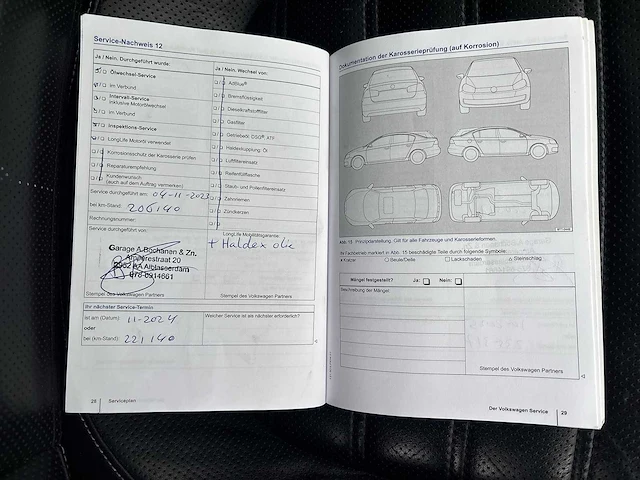 Service-Nachweis 12
Ja / Nein. Durchgeführt wurde:
Ölwechsel-Service
im Verbund
Intervall-Service
inklusive Motorölwechsel
im Verbund
Inspektions-Service
LongLife Motoröl verwendet
Korrosionsschutz der Karosserie prüfen
Reparaturempfehlung
Kundenwunsch
(auch auf dem Auftrag vermerken)
Service durchgeführt am: 04-11-2023
bei km-Stand: 206140
Rechnungsnummer:
Service durchgeführt von:
Garage A Bochanen & Zn.
20
Alblasserdam
078-6914661
Stempel des Volkswagen Partners
Ja / Nein. Wechsel von:
AdBlue®
Bremsflüssigkeit
Dieselkraftstofffilter
Gasfilter
Getriebeöl: DSG®, ATF
Haldexkupplung: Öl
Luftfiltereinsatz
Reifenfüllflasche
Staub- und Pollenfiltereinsatz
Zahnriemen
Zündkerzen
LongLife Mobilitätsgarantie:
+ Haldex olie
Stempel des Volkswagen Partners
Ihr nächster Service-Termin
ist am (Datum): 11-2024
oder
bei (km-Stand): 221140
Welcher Service ist als nächster erforderlich?
28 Serviceplan
Dokumentation der Karosserieprüfung (auf Korrosion)
Abb. 15 Prinzipdarstellung. Gilt für alle Fahrzeuge und Karosserieformen.
Ihr Fachbetrieb markiert in Abb. 15 beschädigte Teile durch folgende Symbole:
x Kratzer ○ Beule/Delle □ Lackschaden △ Steinschlag
Mängel festgestellt? Ja: Nein:
Beschreibung der Mängel:
Stempel des Volkswagen Partners
Der Volkswagen Service 29